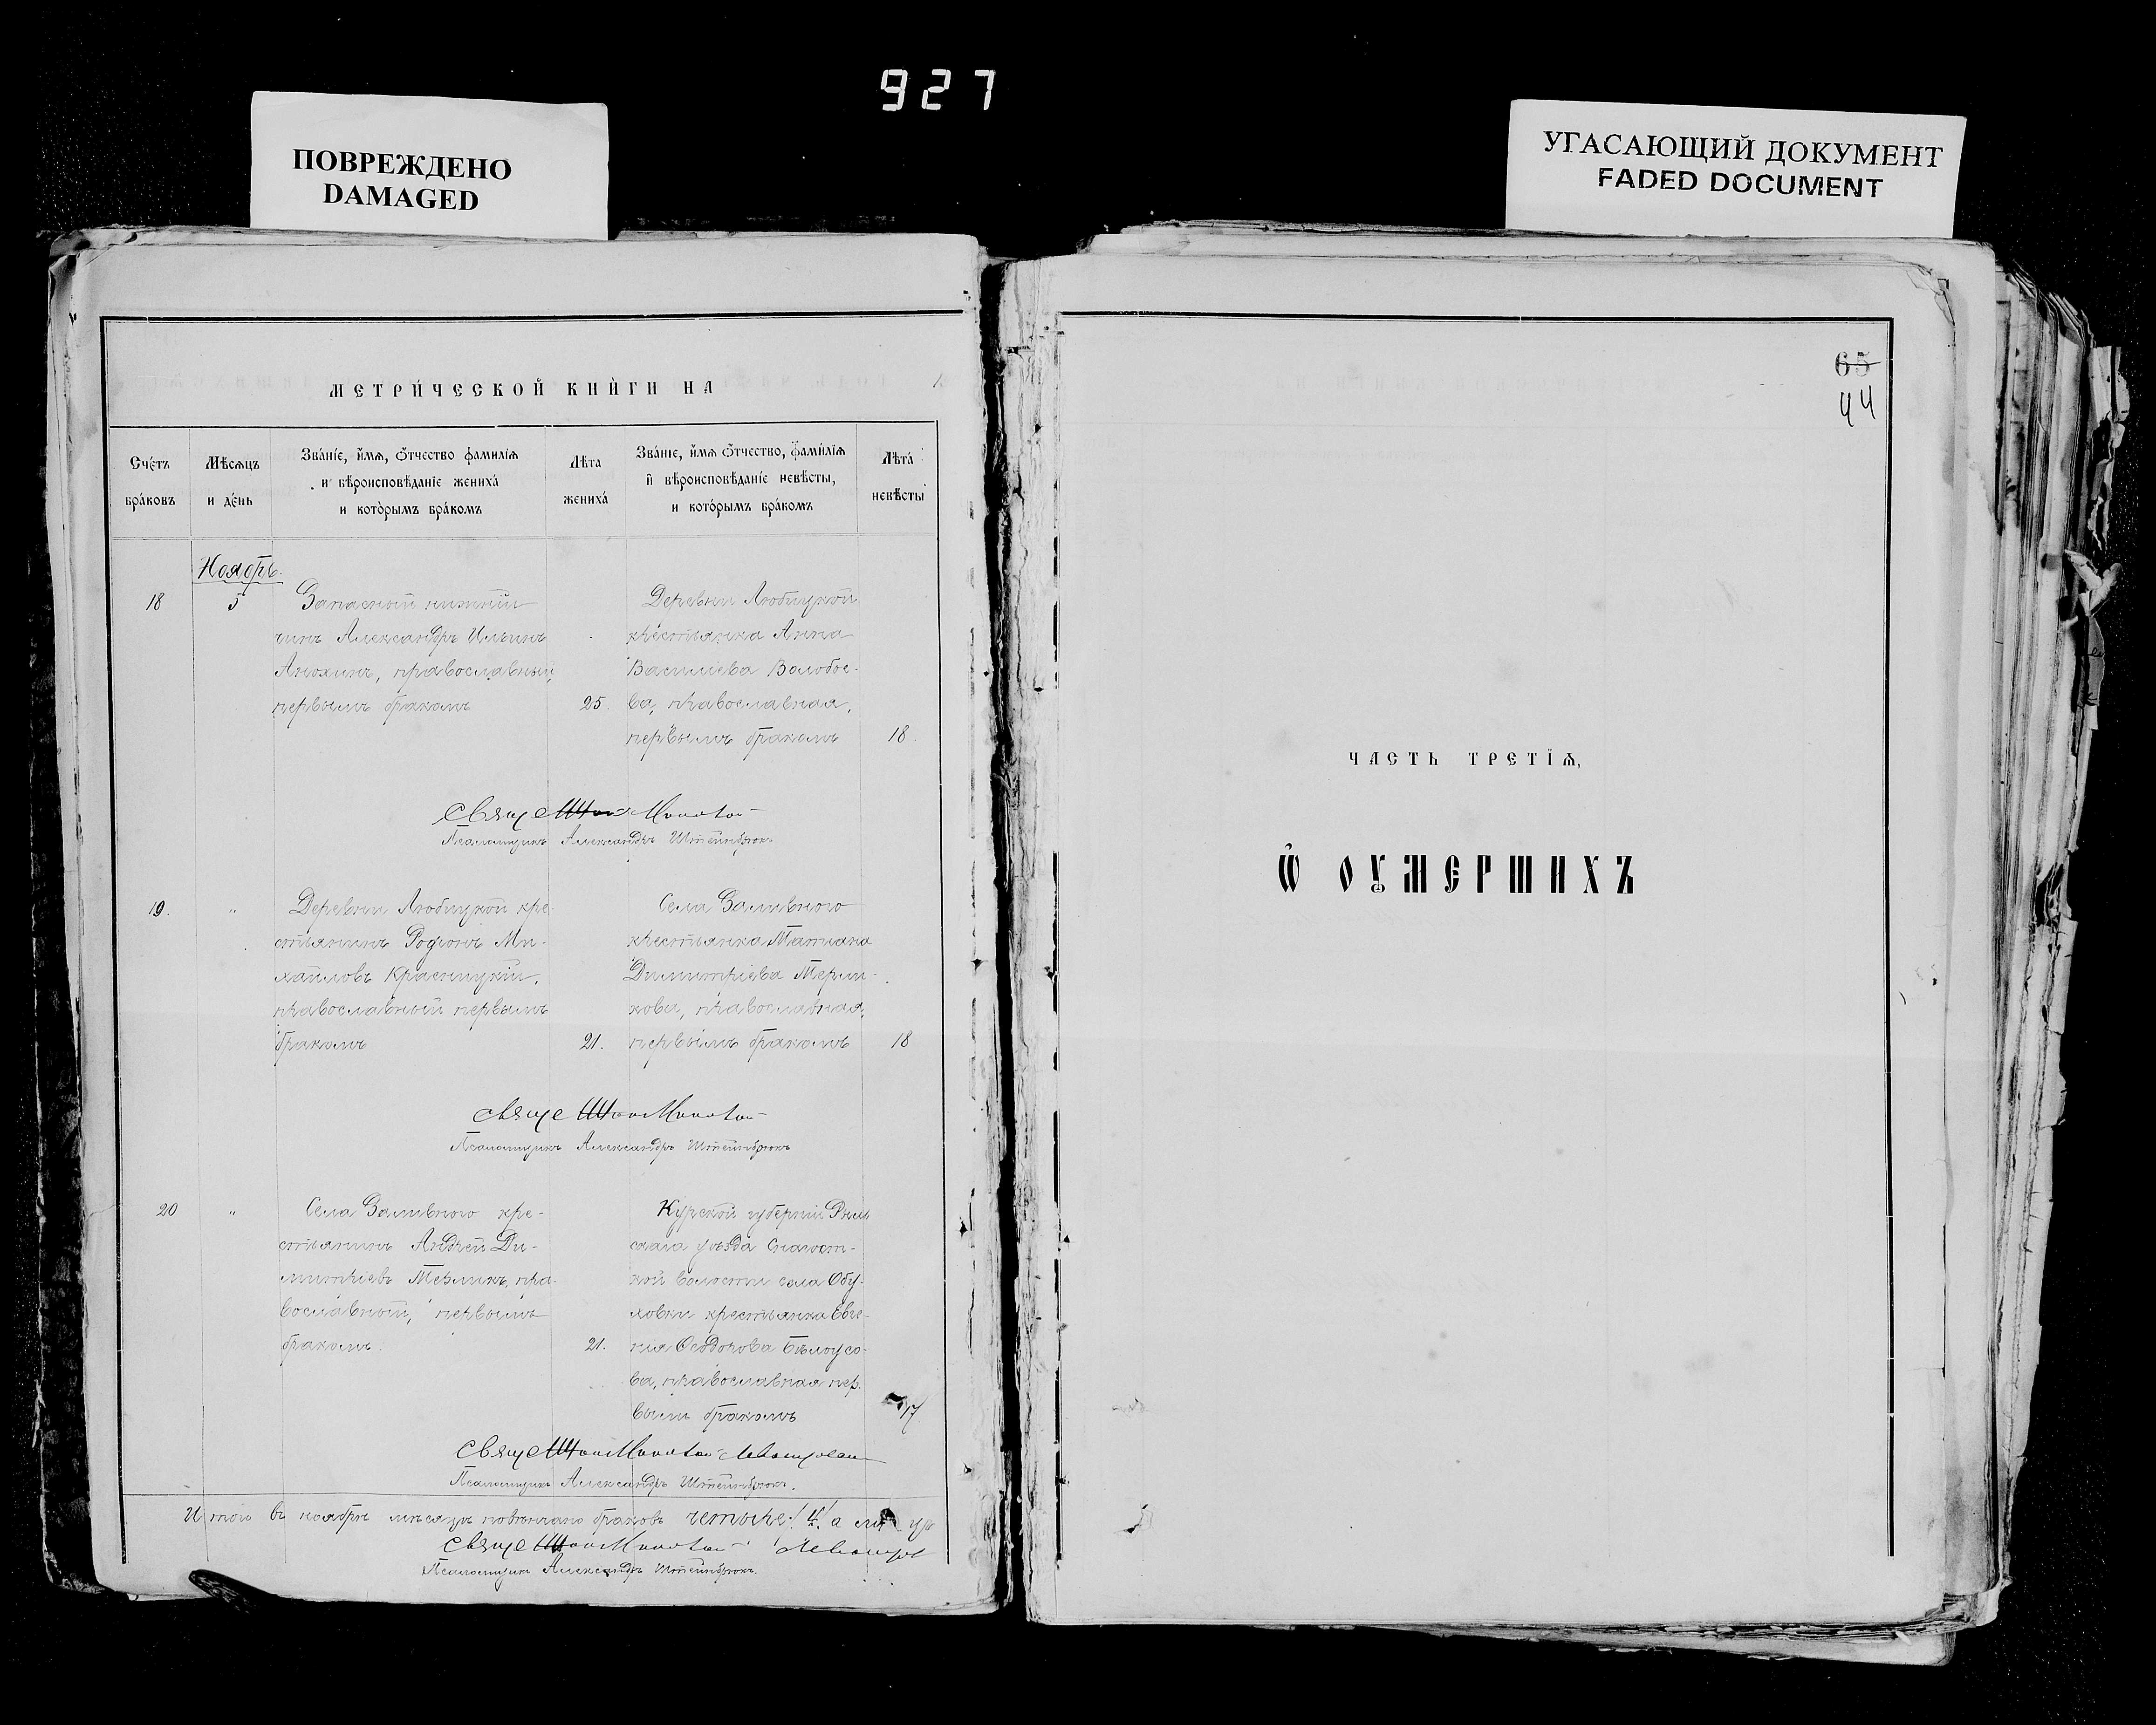 927
ПОВРЕЖДЕНО
DAMAGED
УГАСАЮЩИЙ ДОКУМЕНТ
FADED DOCUMENT
МЕТРИ́ЧЕСКОЙ КНЍГИ НА 1
Сче́тъ бра́ковъ
Мѣ́сѧцъ и де́нь
Зва́нїе, и҆́мѧ, ѻ҆́тчество фами́лїѧ
и вѣроисповѣ́данїе жениха̀
и кото́рымъ бра́комъ
Лѣ́та жениха́
Зва́нїе, и҆́мѧ ѻ҆́тчество, фами́лїѧ
и҆ вѣроисповѣ́данїе невѣ́сты,
и кото́рымъ бра́комъ
Лѣта́ невѣ́сты
Ноябрь.
18
5
Запасный нижній
чинъ Александръ Ильинъ
Анохинъ, православный,
первымъ бракомъ
25.
Деревни Любицкой
крестьянка Анна
Василіева Волобое-
ва, православная,
первымъ бракомъ
18.
Псаломщикъ Александръ Штейнбрюкъ
19.
"
Деревни Любицкой кре-
стьянинъ Родіонъ Ми-
хайловъ Красницкій,
православный первымъ
бракомъ
21.
Села Заливного
крестьянка Татіана
Димитріева Терли-
кова, православная,
первымъ бракомъ
18
Псаломщикъ Александръ Штейнбрюкъ
20
"
Села Заливного кре-
стьянинъ Андрей Ди-
митріевъ Терликъ, пра-
вославный, первымъ
бракомъ.
21.
Курской губерніи Рыль
скаго уѣзда Снагост-
кой волости села Обу-
ховки крестьянка Евге-
нія Ѳеодорова Бѣлоусо-
ва, православная пер-
вымъ бракомъ
17
Псаломщикъ Александръ Штейнбрюкъ.
Итого въ ноябрѣ мѣсяцѣ повѣнчано браковъ четыре /4/ а
Псаломщикъ Александръ Штейнбрюкъ.
65
44
ЧАСТЬ ТРЕТЇѦ,
Ѡ҆ ОУМЕРШИХЪ